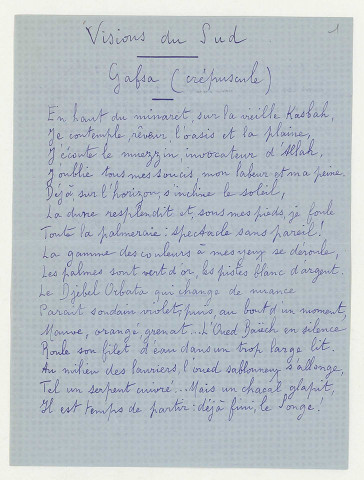 1
Visions du Sud
Gafsa (crépuscule)
En haut du minaret, sur la vieille Kasbah,
Je contemple, rêveur, l'oasis et la plaine,
J'écoute le muezzin, invocateur d'Allah,
J'oublie tous mes soucis, mon labeur et ma peine.
Déjà, sur l'horizon, s'incline le soleil,
La dune resplendit et, sous mes pieds, je foule
Toute la palmeraie : spectacle sans pareil !
La gamme des couleurs à mes yeux se déroule,
Les palmes sont vert d'or, les pistes blanc d'argent.
Le Djebel Orbata qui change de nuance
Paraît soudain violet, puis, au bout d'un moment,
Mauve, orange, grenat... L'Oued Baïech en silence
Roule son filet d'eau dans un trop large lit.
Au milieu des lauriers, l'oued sablonneux s'allonge,
Tel un serpent cuivré... Mais un chacal glapit,
Il est temps de partir : déjà fini, le Songe !